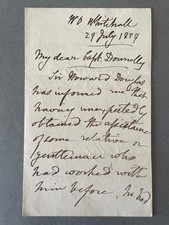 W O Whitehall
29 July 1859
My dear Capt. Donnelly
Sir Howard Douglas
has informed me that
having unexpectedly
obtained the assistance
of some relative or
gentleman who
had worked with
him before, he